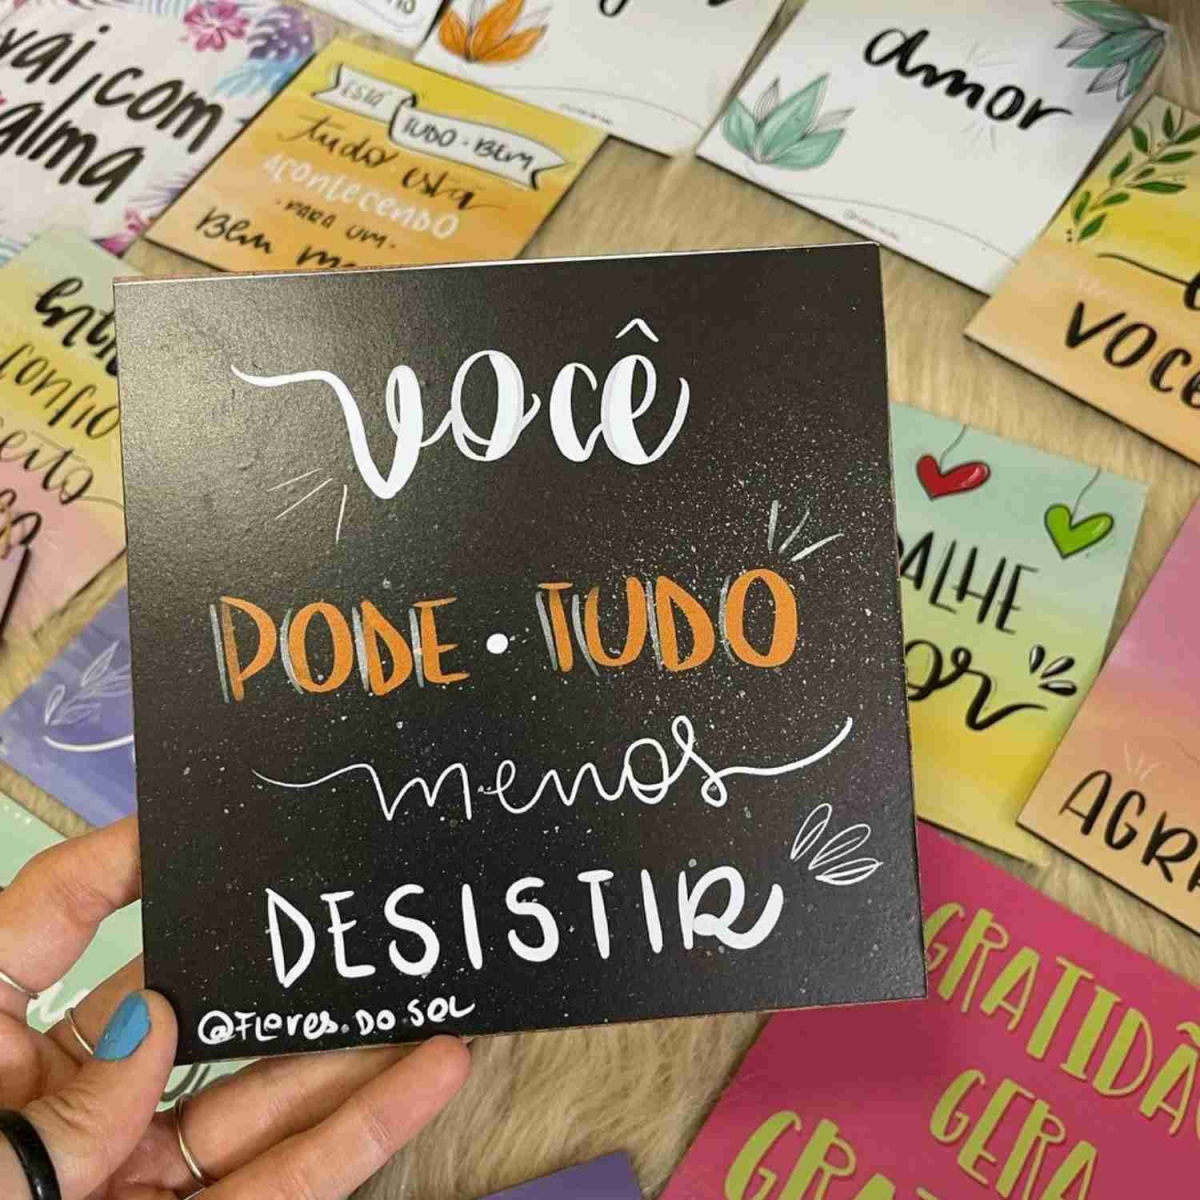 vai com
alma
ESTÁ TUDO · BEM
tudo está
ACONTECENDO
· PARA UM ·
BEM
amor
VOCÊ
confio
VOCÊ
PODE · TUDO
menos
DESISTIR
@FLORES.DO.SOL
AGR
GRATIDÃ
GERA
GRA